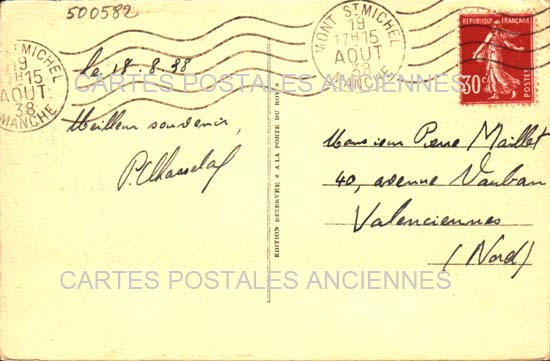 500582
MONT ST MICHEL
19
17H15
AOUT
38
MANCHE
ST MICHEL
19
H15
AOUT
38
MANCHE
REPUBLIQUE FRANÇAISE
30c
POSTES
le 18.8.38
CARTES POSTALES ANCIENNES
Meilleur souvenir,
EDITION RÉSERVÉE * A LA PORTE DU ROY
Monsieur Pierre Maillet
40, avenue Vauban
Valenciennes
(Nord)
CARTES POSTALES ANCIENNES